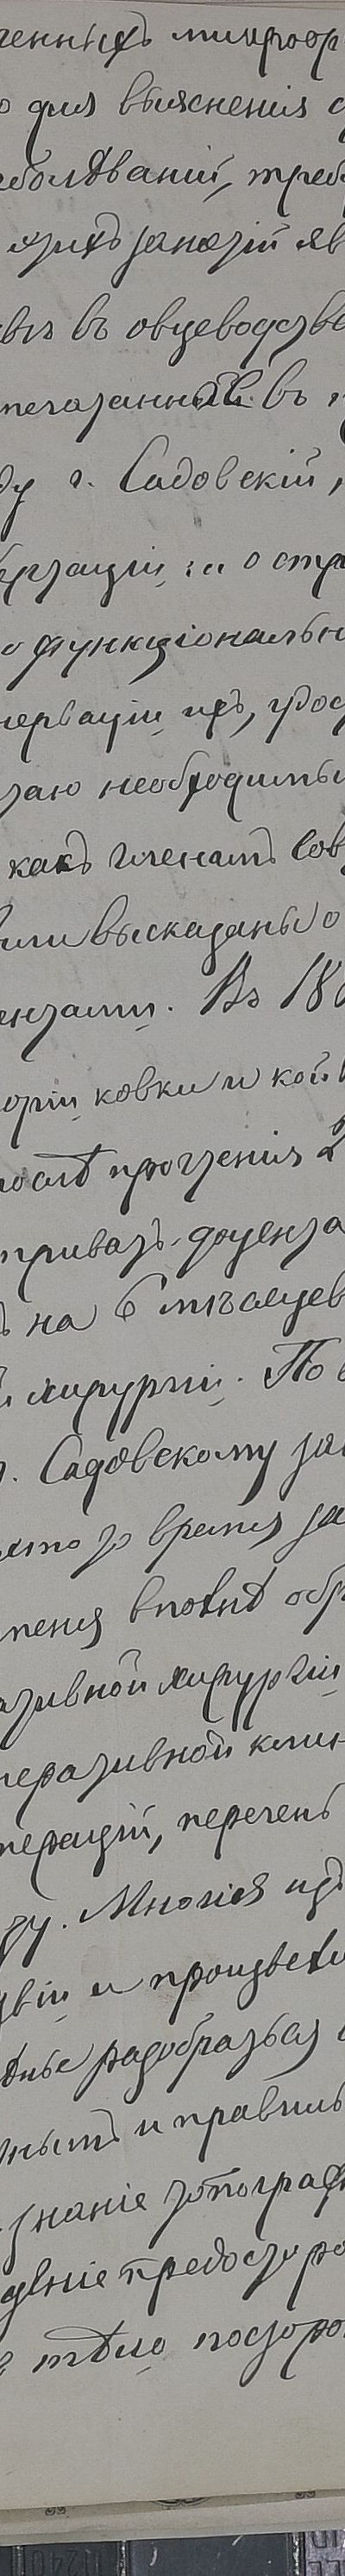 ченныхъ микроор
о для выясненія с
аболѣваній, треб
язихъ занятій яв
въ въ овцеводство
печатанная въ
ду г. Садовскій,
бутаціи и о стр
о функціональн
нерваціи ихъ, удос
таю необходимы
какъ членамъ Сов
были высказаны о
ентами. Въ 18
оріи ковки и
послѣ прочтенія 2
приватъ-доцента
ъ на 6 мѣсяцев
й хирургіи. По
г. Садовскому за
что то время за
менѣя вполнѣ обр
ативной хирургіи
перативной клин
пераціи, перечень
ту. Многія из
твіи и произвели
днѣе разобраться
нымъ и правиль
знаніе топограф
деніе предосторо
тѣло посторон